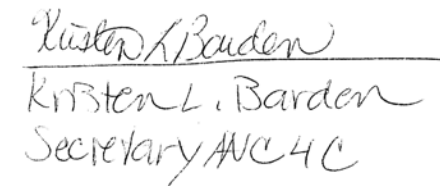 Kristen L Barden
Kristen L. Barden
Secretary ANC 4C